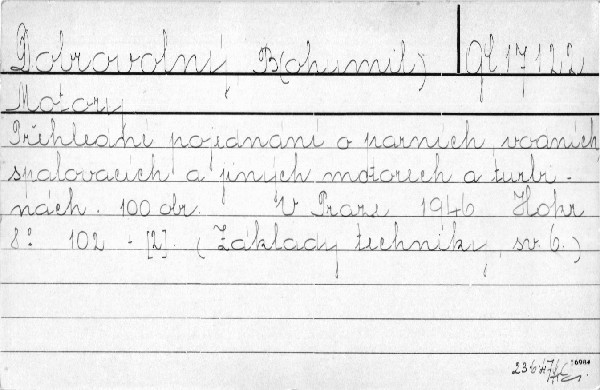 Dobrovolný B(ohumil) Gl 17122
Motory
Přehledné pojednání o parních, vodních,
spalovacích a jiných motorech a turbi-
nách. 100 obr. V Praze 1946 Hokr
8° 102 - [2]. (Základy techniky, sv. 6.)